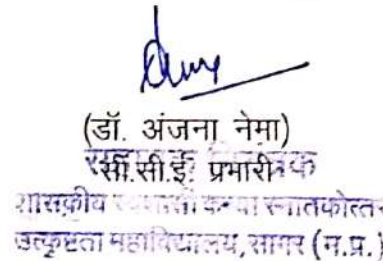 (डॉ. अंजना नेमा)
सी.सी.ई. प्रभारी
शासकीय स्वशासी कन्या स्नातकोत्तर
उत्कृष्टता महाविद्यालय, सागर (म.प्र.)